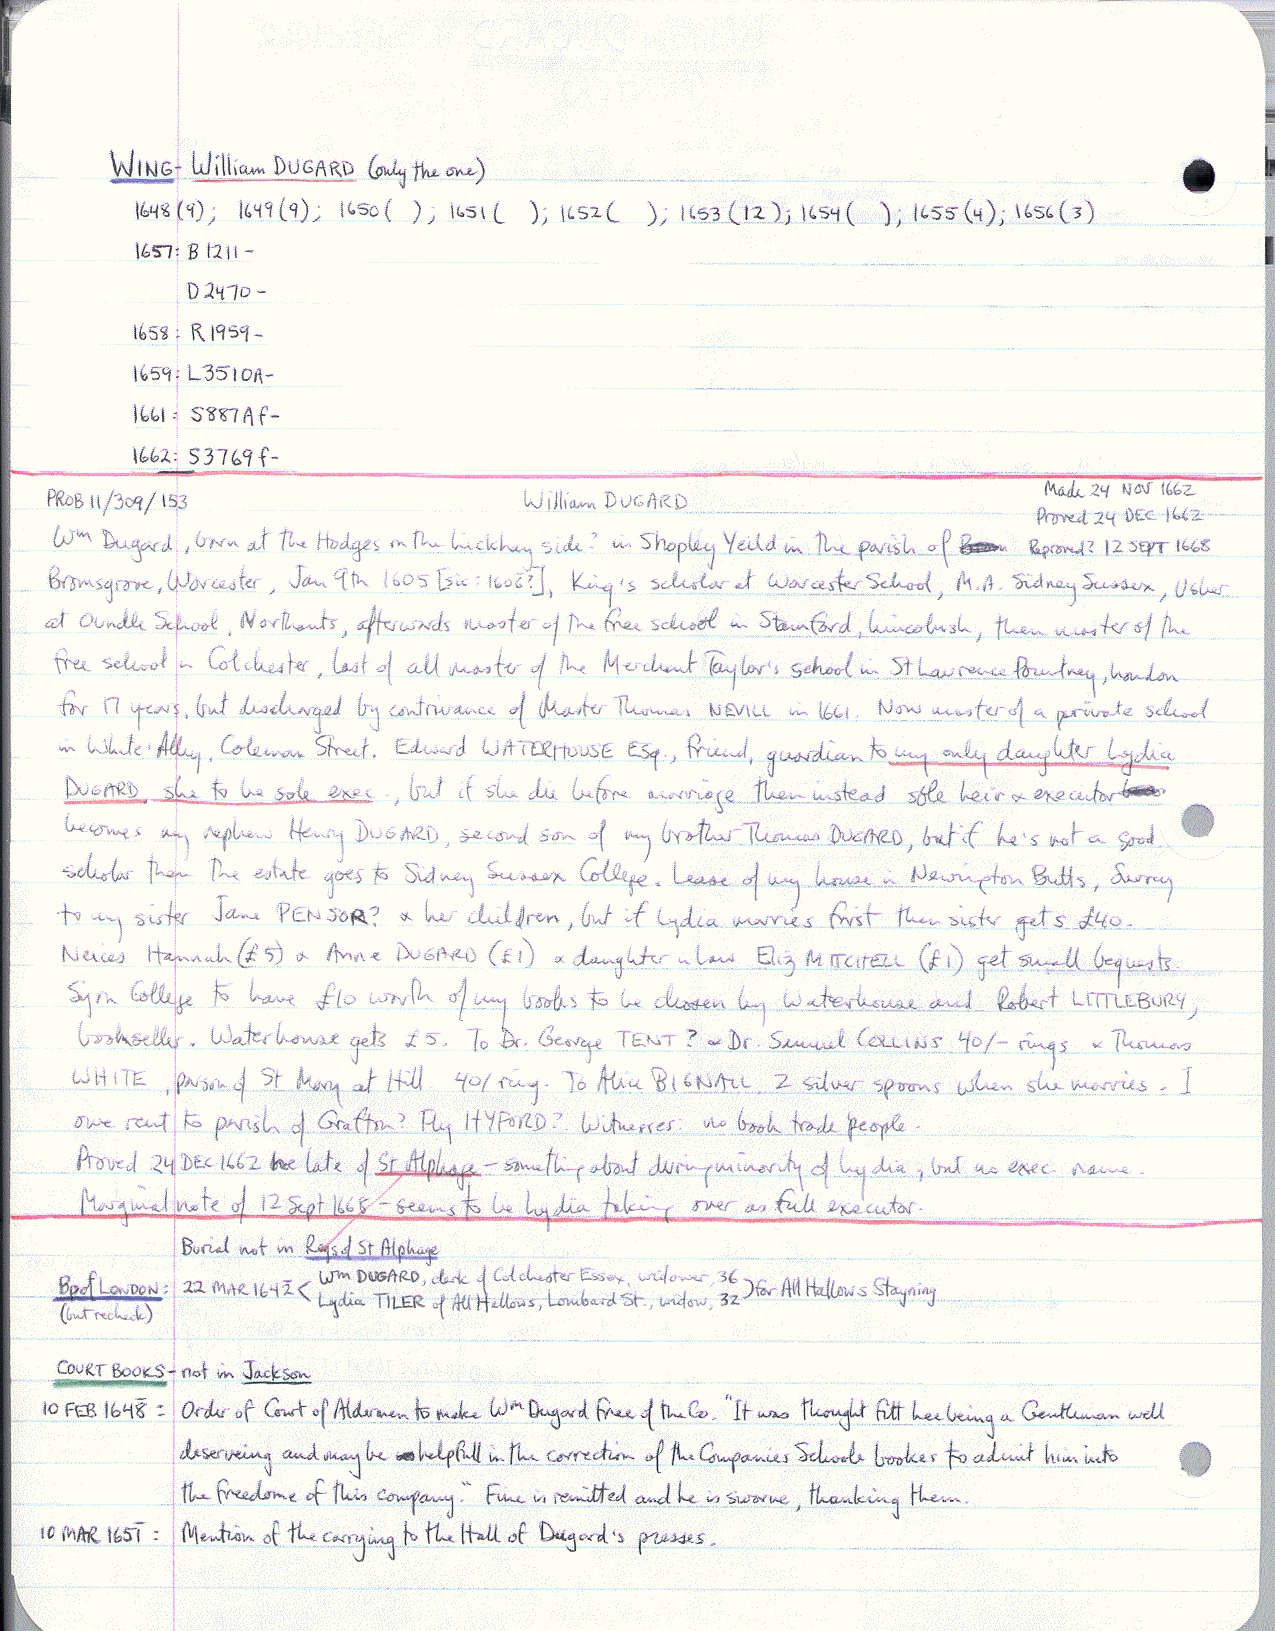 WING - William DUGARD (only the one)
1648(9); 1649(9); 1650( ); 1651( ); 1652( ); 1653(12); 1654( ); 1655(4); 1656(3)
1657: B1211-
D2470-
1658: R1959-
1659: L3510A-
1661: S887Af-
1662: S3769f-
PROB 11/309/153 William DUGARD Made 24 NOV 1662
Proved 24 DEC 1662
Wm Dugard, born at the Hodges on the Lickhay side? in Shopley Yeild in the parish of Reproved? 12 SEPT 1668
Bromsgrove, Worcester, Jan 9th 1605 [sic: 1606?], King's scholar at Worcester School, M.A. Sidney Sussex, Usher
at Oundle School, Northants, afterwards master of the free school in Stamford, Lincolnsh, then master of the
free school in Colchester, last of all master of the Merchant Taylor's school in St Lawrence Pountney, London
for 17 years, but discharged by contrivance of Master Thomas NEVILL in 1661. Now master of a private school
in White Alley, Coleman Street. Edward WATERHOUSE ESq., friend, guardian to my only daughter Lydia
DUGARD, she to be sole exec., but if she die before marriage then instead sole heir & executor
becomes my nephew Henry DUGARD, second son of my brother Thomas DUGARD, but if he's not a good
scholar then the estate goes to Sidney Sussex College. Lease of my house in Newington Butts, Surrey
to my sister Jane PENSOR? & her children, but if Lydia marries first then sister gets £40.
Neices Hannah (£5) & Anne DUGARD (£1) & daughter in law Eliz MITCHELL (£1) get small bequests.
Syon College to have £10 worth of my books to be chosen by Waterhouse and Robert LITTLEBURY,
bookseller. Waterhouse gets £5. To Dr. George TENT? & Dr. Samuel COLLINS 40/- rings & Thomas
WHITE, parson of St Mary at Hill 40/ ring. To Alice BIGNALL 2 silver spoons when she marries. I
owe rent to parish of Grafton? Fly HYFORD?. Witnesses: no book trade people.
Proved 24 DEC 1662 late of St Alphage - something about during minority of Lydia, but no exec name.
Marginal note of 12 Sept 1668 - seems to be Lydia taking over as full executor.
Burial not in Regs of St Alphage
Bp of LONDON: 22 MAR 1642 < Wm DUGARD, clerk of Colchester Essex, widower, 36
Lydia TILER of All Hallows, Lombard St., widow, 32 ) for All Hallows Stayning
(but recheck)
COURT BOOKS - not in Jackson
10 FEB 1648: Order of Court of Aldermen to make Wm Dugard Free of the Co. "It was thought fitt hee being a Gentleman well
deserveing and may be helpfull in the correction of the Companies Schoole bookes to admit him into
the freedome of this company." Fine is remitted and he is sworne, thanking them.
10 MAR 1651: Mention of the carrying to the Hall of Dugard's presses.